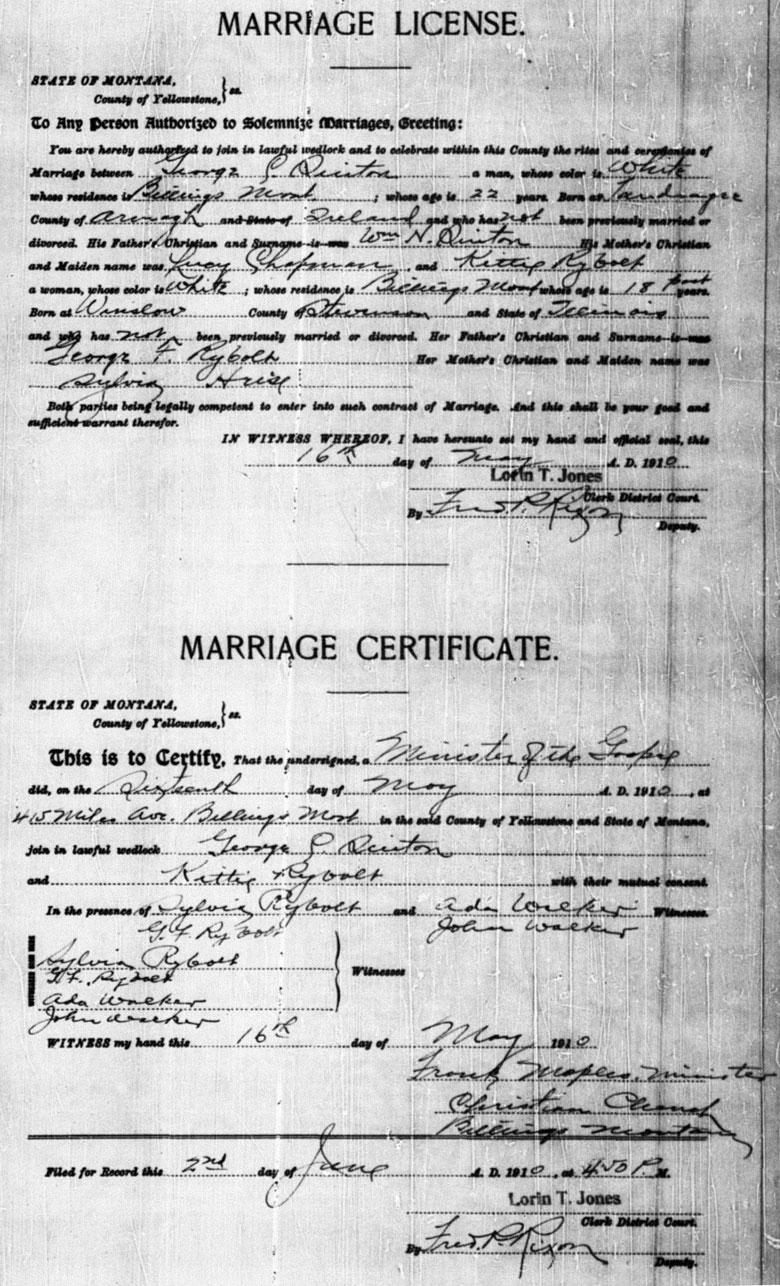 MARRIAGE LICENSE.
STATE OF MONTANA,
County of Yellowstone, } ss.
To Any Person Authorized to Solemnize Marriages, Greeting:
You are hereby authorized to join in lawful wedlock and to celebrate within this County the rites and ceremonies of
Marriage between George C Quinton a man, whose color is White
whose residence is Billings Mont. ; whose age is 22 years. Born at Tandragee
County of Armagh and State of Ireland and who has not been previously married or
divorced. His Father's Christian and Surname is was Wm N. Quinton His Mother's Christian
and Maiden name was Lucy Chapman and Kittie Rybolt
a woman, whose color is White ; whose residence is Billings Mont whose age is 18 past years.
Born at Winslow County of Stevenson and State of Illinois
and who has not been previously married or divorced. Her Father's Christian and Surname is was
George F. Rybolt Her Mother's Christian and Maiden name was
Sylvia Hrise
Both parties being legally competent to enter into such contract of Marriage. And this shall be your good and
sufficient warrant therefor.
IN WITNESS WHEREOF, I have hereunto set my hand and official seal, this
16th day of May A. D. 1910
Lorin T. Jones
Clerk District Court.
By Fred. P. Rixon
Deputy.
MARRIAGE CERTIFICATE.
STATE OF MONTANA,
County of Yellowstone, } ss.
This is to Certify, That the undersigned, a Minister of the Gospel
did, on the Sixteenth day of May A. D. 1910, at
415 Miles Ave. Billings Mont in the said County of Yellowstone and State of Montana,
join in lawful wedlock George C. Quinton
and Kittie Rybolt with their mutual consent.
In the presence of Sylvia Rybolt and Ada Walker Witnesses.
G. F. Rybolt John Walker
Sylvia Rybolt
G. F. Rybolt
Witnesses
Ada Walker
John Walker
WITNESS my hand this 16th day of May 1910
Frank Maples. Minister
Christian Church
Billings Montana
Filed for Record this 2nd day of June A. D. 1910, at 4:50 P. M.
Lorin T. Jones
Clerk District Court.
By Fred. P. Rixon
Deputy.